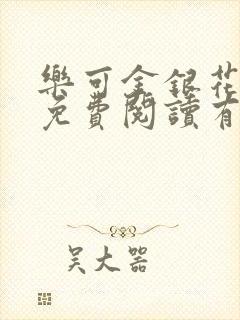 樂可金銀花
免費閱讀有
吴大器